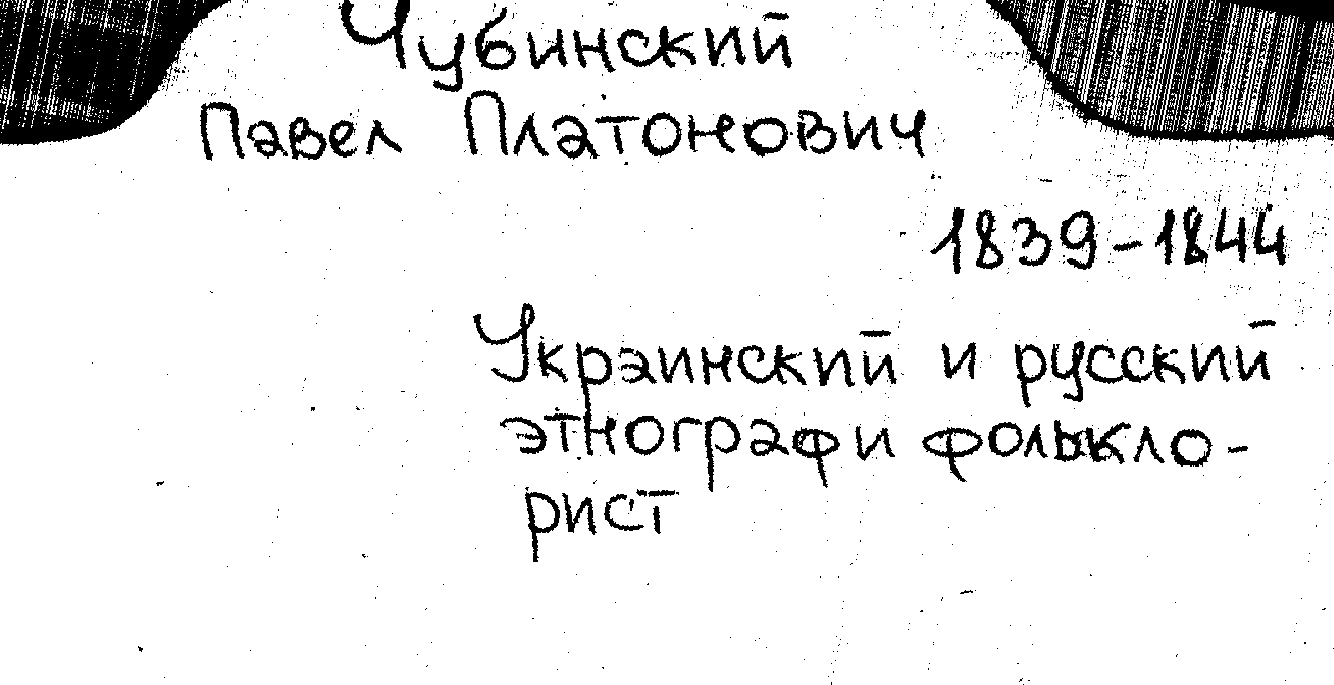 Чубинский
Павел Платонович
1839-1844
Украинский и русский
этнограф и фолькло-
рист